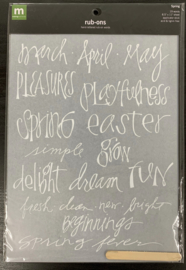 m
rub-ons
Spring
march April May
PLEASURES playfulness
SPRING easter
simple grow
delight dream FUN
fresh clean new bright
Beginnings
spring fever